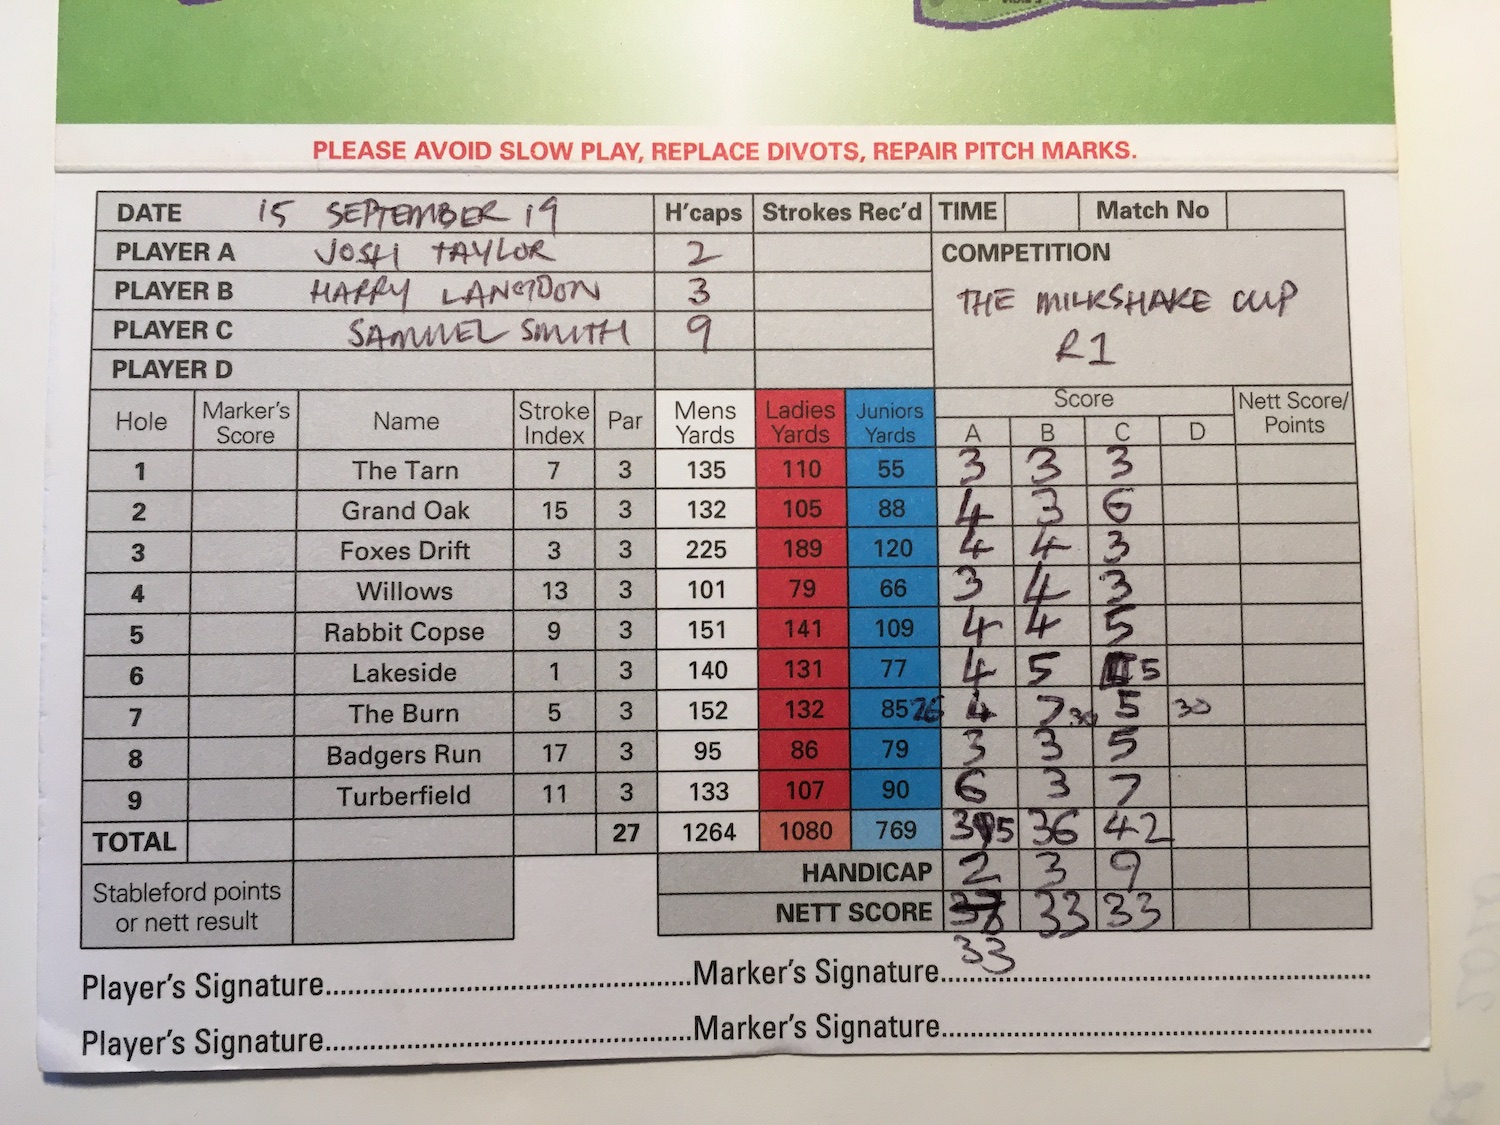 PLEASE AVOID SLOW PLAY, REPLACE DIVOTS, REPAIR PITCH MARKS.
DATE 15 SEPTEMBER 19 H'caps Strokes Rec'd TIME Match No
PLAYER A JOSH TAYLOR 2 COMPETITION
PLAYER B HARRY LANGDON 3 THE MILKSHAKE CUP
PLAYER C SAMUEL SMITH 9 R1
PLAYER D
Hole Marker's Score Name Stroke Index Par Mens Yards Ladies Yards Juniors Yards Score A B C D Nett Score/ Points
1 The Tarn 7 3 135 110 55 3 3 3
2 Grand Oak 15 3 132 105 88 4 3 6
3 Foxes Drift 3 3 225 189 120 4 4 3
4 Willows 13 3 101 79 66 3 4 3
5 Rabbit Copse 9 3 151 141 109 4 4 5
6 Lakeside 1 3 140 131 77 4 5 5
7 The Burn 5 3 152 132 85 26 4 7 30 5 30
8 Badgers Run 17 3 95 86 79 3 3 5
9 Turberfield 11 3 133 107 90 6 3 7
TOTAL 27 1264 1080 769 35 36 42
HANDICAP 2 3 9
Stableford points or nett result NETT SCORE 33 33
33
Player's Signature Marker's Signature
Player's Signature Marker's Signature